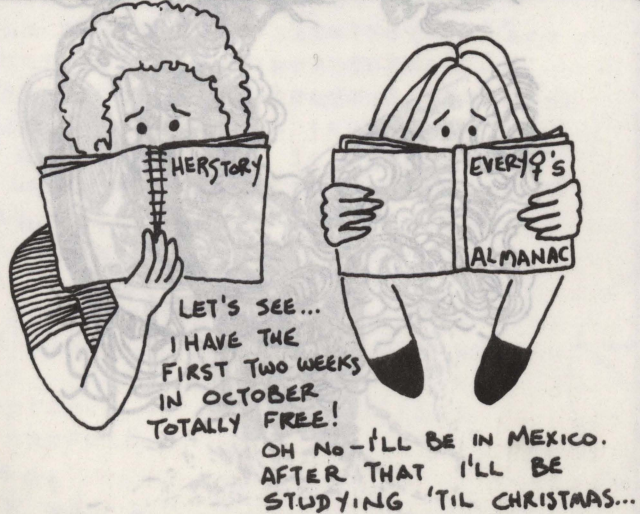 HERSTORY
EVERY♀'S
ALMANAC
LET'S SEE...
I HAVE THE
FIRST TWO WEEKS
IN OCTOBER
TOTALLY FREE!
OH NO - I'LL BE IN MEXICO.
AFTER THAT I'LL BE
STUDYING 'TIL CHRISTMAS...